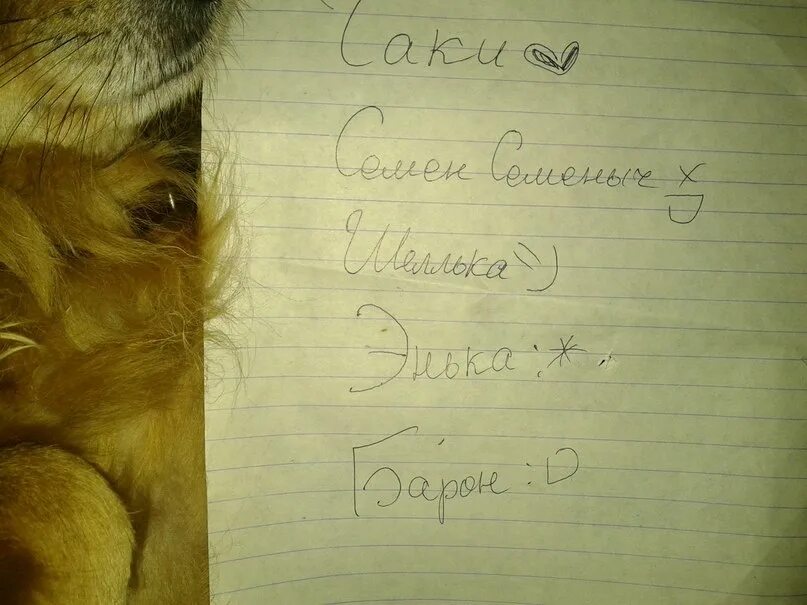 Саки
Семен Семеныч XD
Шеллька =)
Энька :*
Барон :D